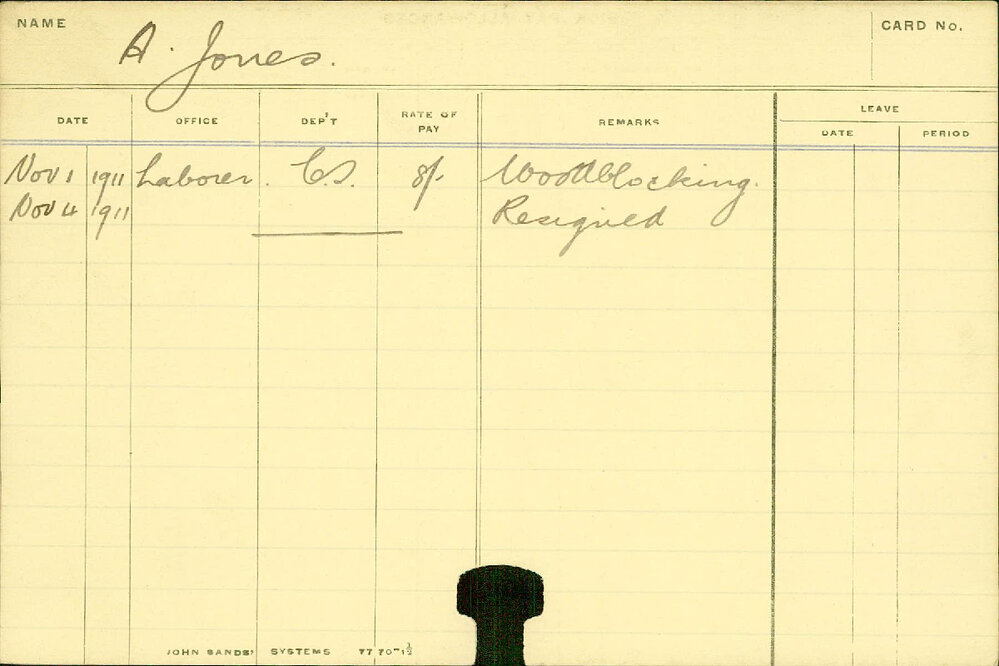 NAME A. Jones. CARD No.
LEAVE
DATE OFFICE DEP'T RATE OF PAY REMARKS DATE PERIOD
Nov 1 1911 Laborer. C.S. 8/- Woodblocking.
Nov 4 1911 Resigned
JOHN SANDS' SYSTEMS